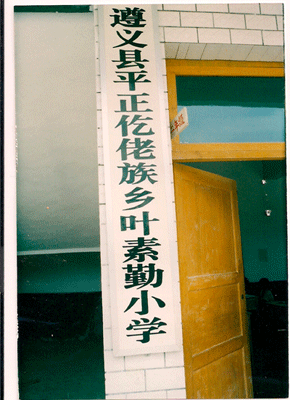 遵义县平正仡佬族乡叶素勤小学